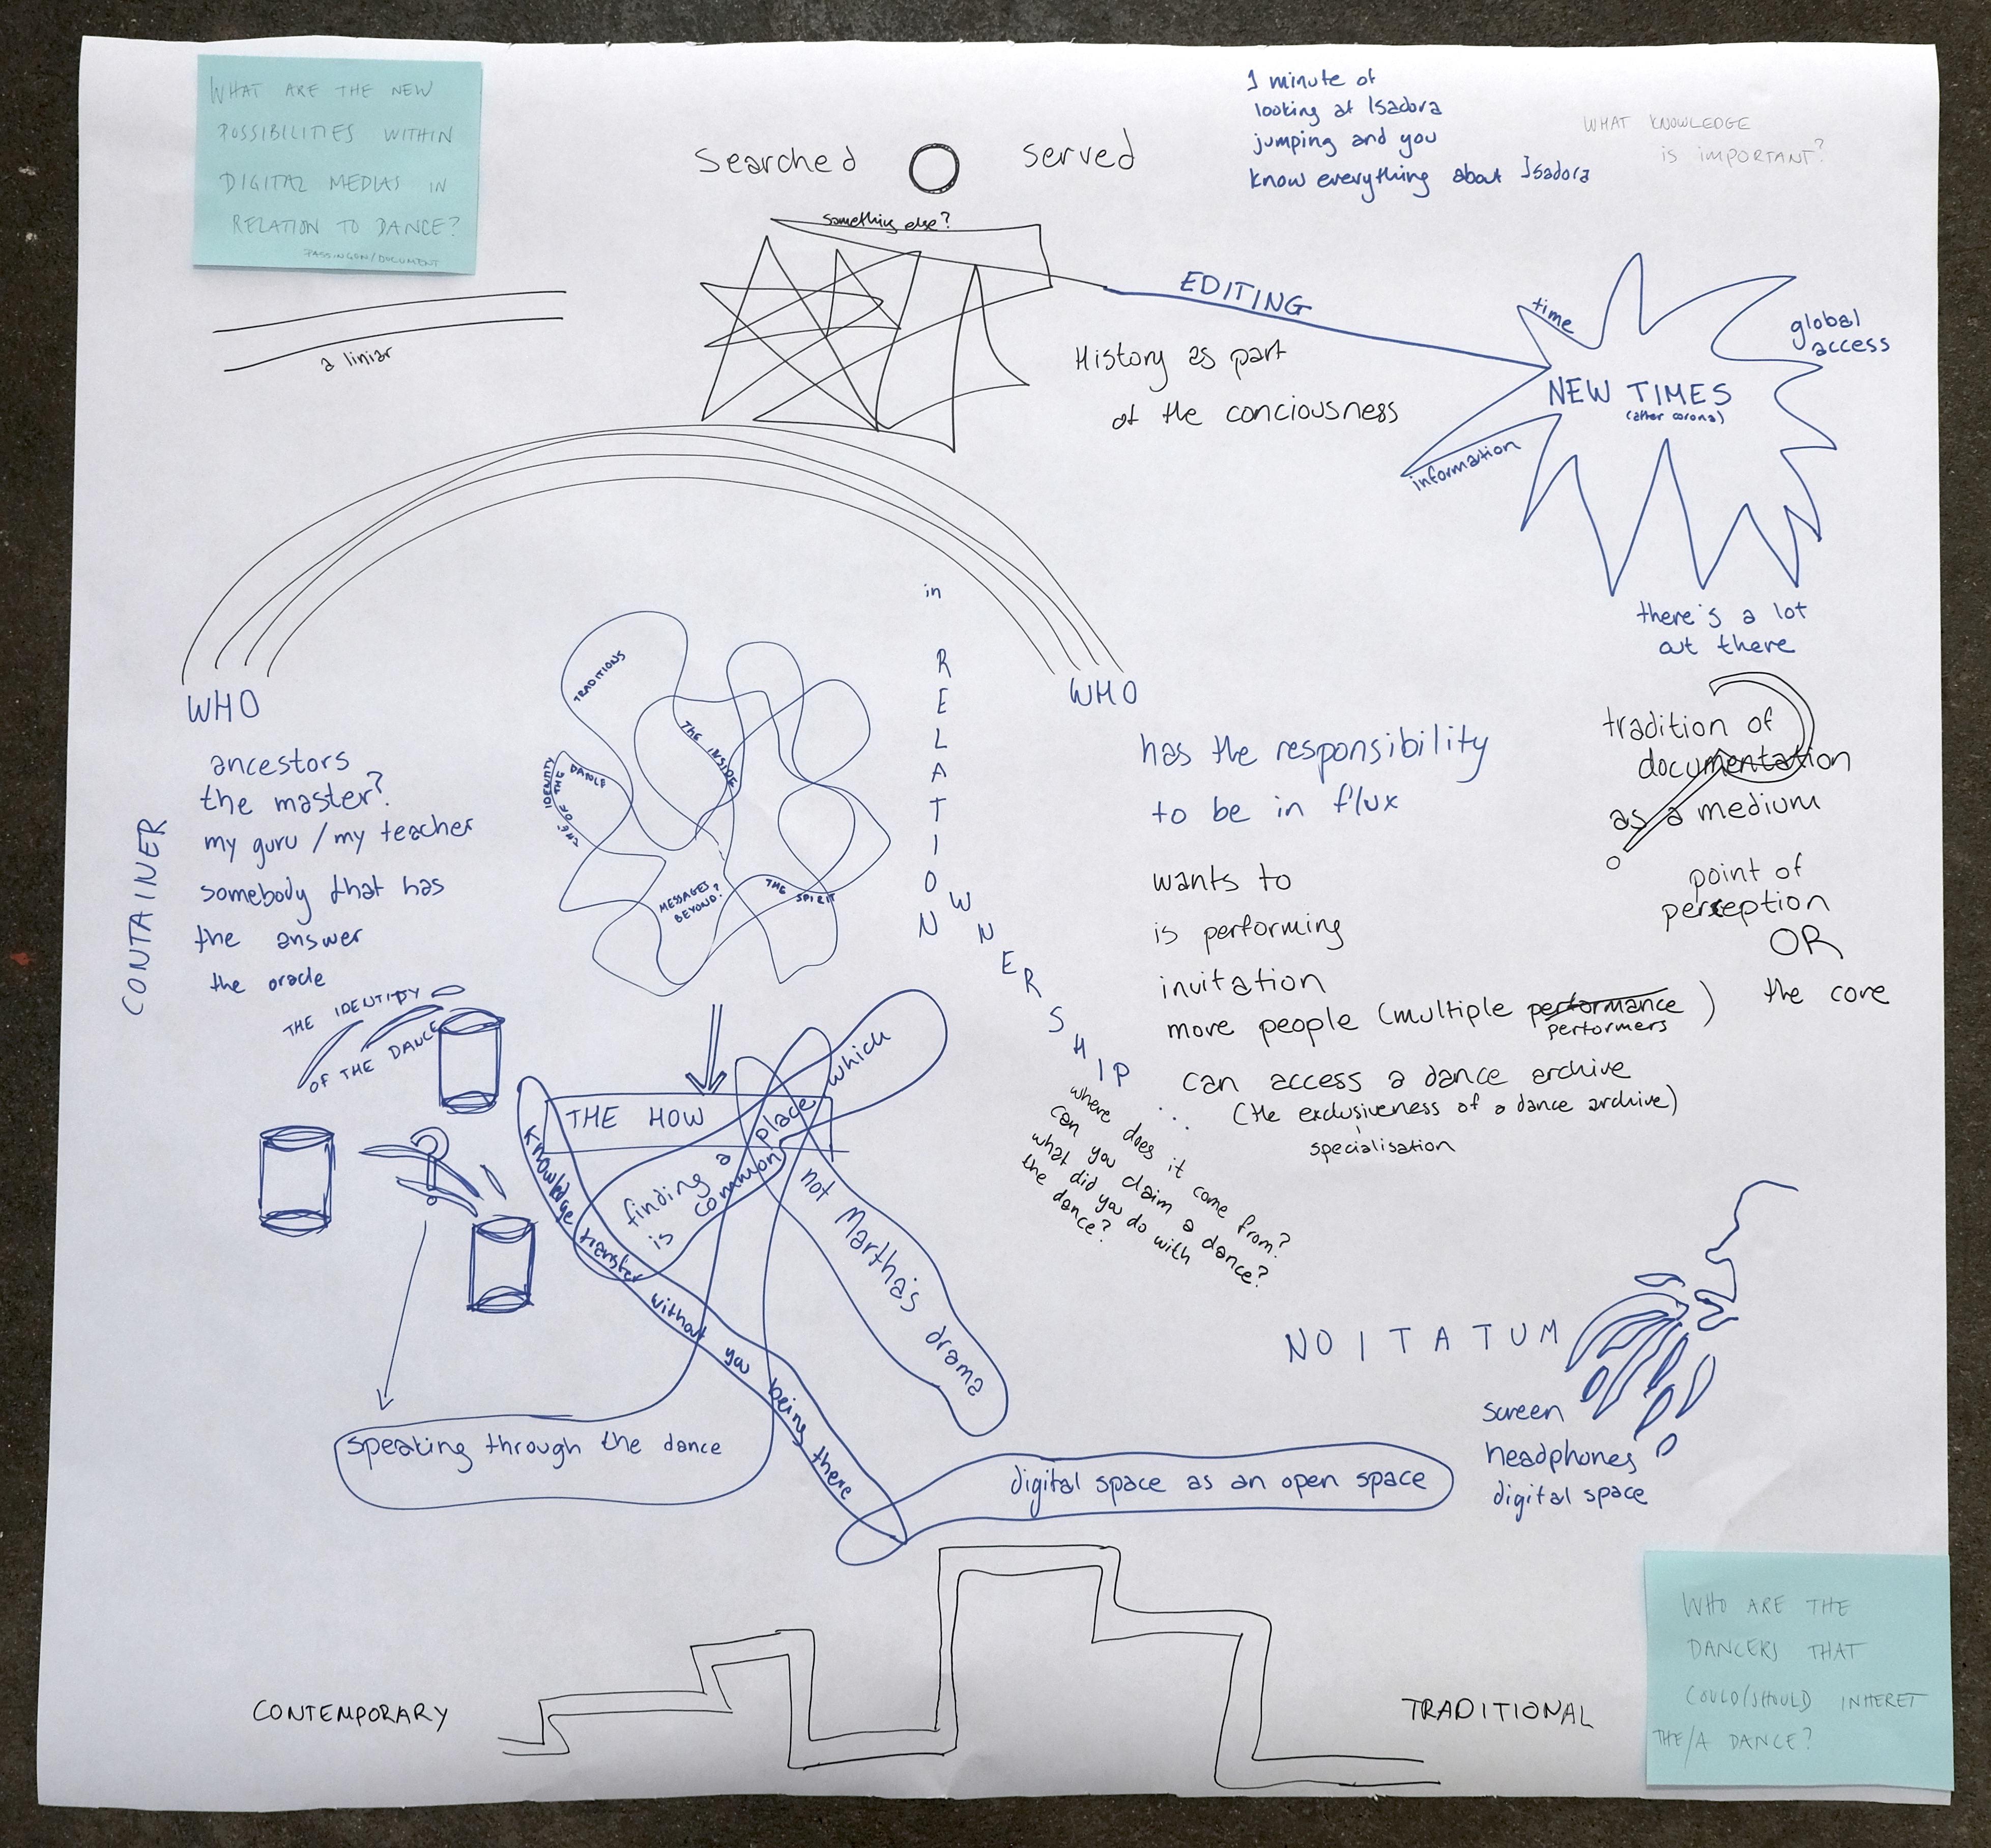 WHAT ARE THE NEW
POSSIBILITIES WITHIN
DIGITAL MEDIAS IN
RELATION TO DANCE?
PASSINGON/DOCUMENT
Searched O served
1 minute of
looking at Isadora
jumping and you
know everything about Isadora
WHAT KNOWLEDGE
IS IMPORTANT?
something else?
a liniar
EDITING
History as part
of the conciousness
time
global
access
NEW TIMES
(after corona)
information
there's a lot
out there
WHO
ancestors
the master?
my guru / my teacher
somebody that has
the answer
the oracle
CONTAINER
TRADITIONS
THE INSIDE
IDENTITY
OF THE
DANCE
THE
MESSAGES
BEYOND?
THE SPIRIT
in
RELATION
OWNERSHIP
WHO
has the responsibility
to be in flux
wants to
is performing
invitation
more people (multiple performance)
performers
can access a dance archive
(the exclusiveness of a dance archive)
specialisation
tradition of
documentation
as a medium
point of
perception
OR
the core
THE IDENTITY
OF THE DANCE
THE HOW
finding a place which
is common
not Martha's drama
Knowledge transfer without you being there
where does it come from?
can you claim a dance?
what did you do with
the dance?
speaking through the dance
digital space as an open space
NOITATUM
screen
headphones
digital space
CONTEMPORARY
TRADITIONAL
WHO ARE THE
DANCERS THAT
COULD/SHOULD INHERET
THE/A DANCE?